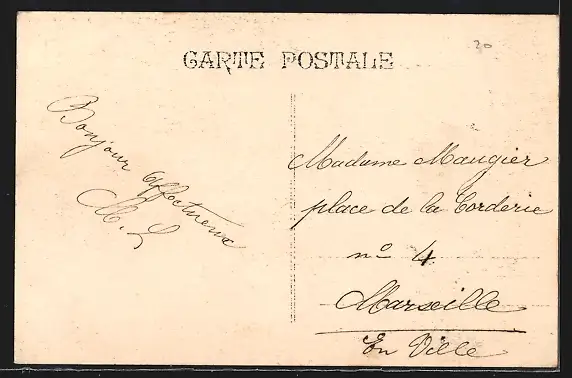 20
CARTE POSTALE
Bonjour affectueux
M. L
Madame Maugier
place de la Corderie
nº 4
Marseille
En Ville